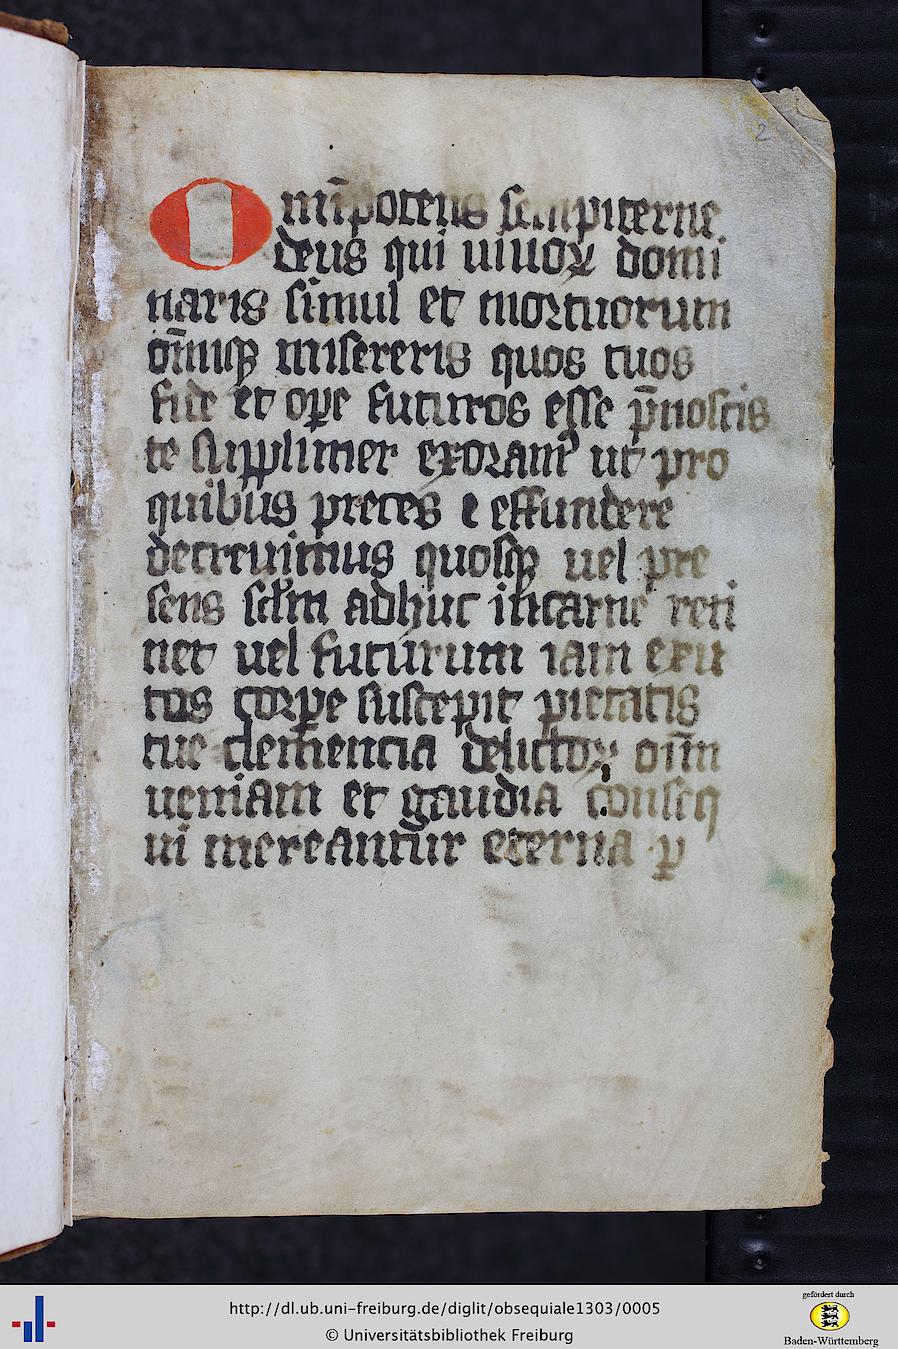 2
Omīpotens sempiterne
deus qui uiuoꝝ domi
naris simul et mortuorum
om̄iuꝫ misereris quos tuos
fide et oꝑe futuros esse p̄noscis
te suppliciter exoramꝰ ut pro
quibus preces effundere
decreuimus quosꝙ uel pre
sens sclm̄ adhuc in carne reti
net uel futurum iam exu
tos corꝑe suscepit pietatis
tue clemencia delictoꝝ oīm
ueniam et gaudia conseq
ui mereantur eterna ꝑ
http://dl.ub.uni-freiburg.de/diglit/obsequiale1303/0005
© Universitätsbibliothek Freiburg
gefördert durch
Baden-Württemberg